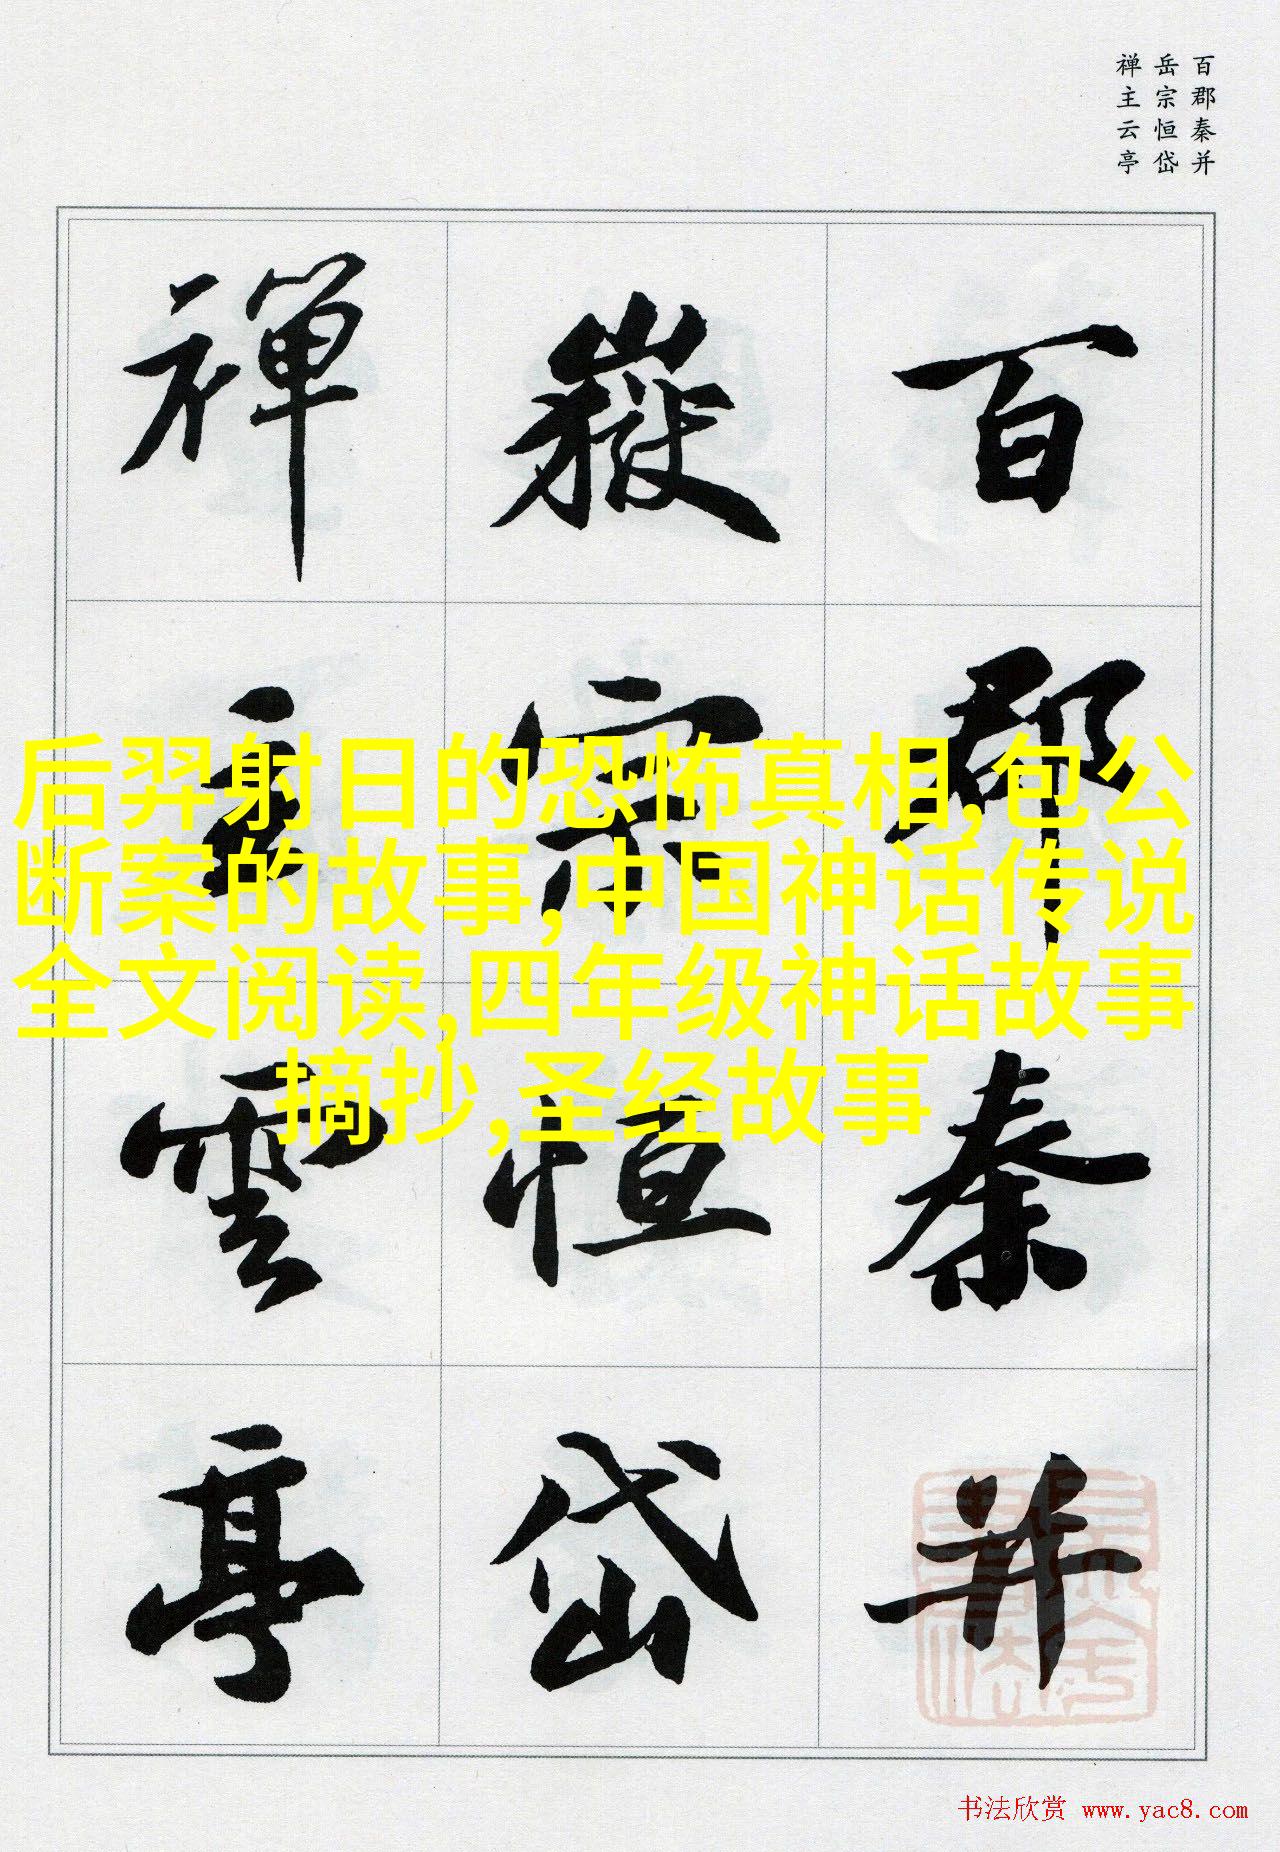 百郡秦并
岳宗恒岱
禅主云亭
百郡秦并
嶽宗恒岱
禅主雲亭
后羿射日的恐怖真相,包公
断案的故事,中国神话传说
全文阅读,四年级神话故事
摘抄,圣经故事
书法欣赏 www.yac8.com